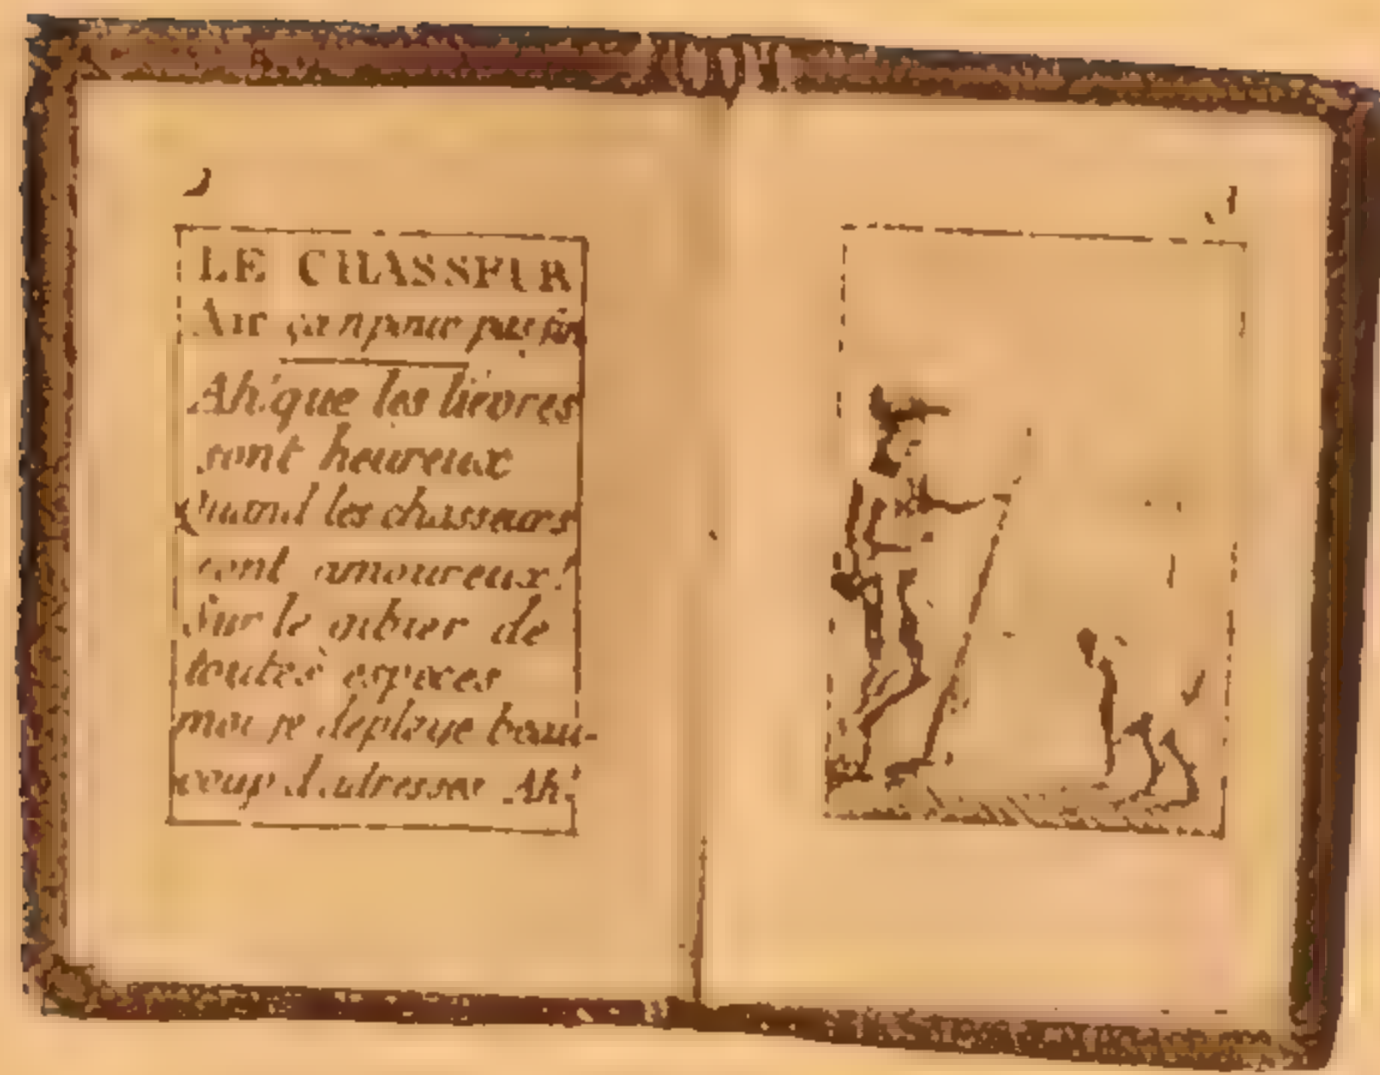 LE CHASSEUR
Air ça n'peut pas
Ah! que les lièvres
sont heureux
Quand les chasseurs
sont amoureux!
Sur le gibier de
toutes espèces
moi je déploye beau-
coup d'adresses Ah!